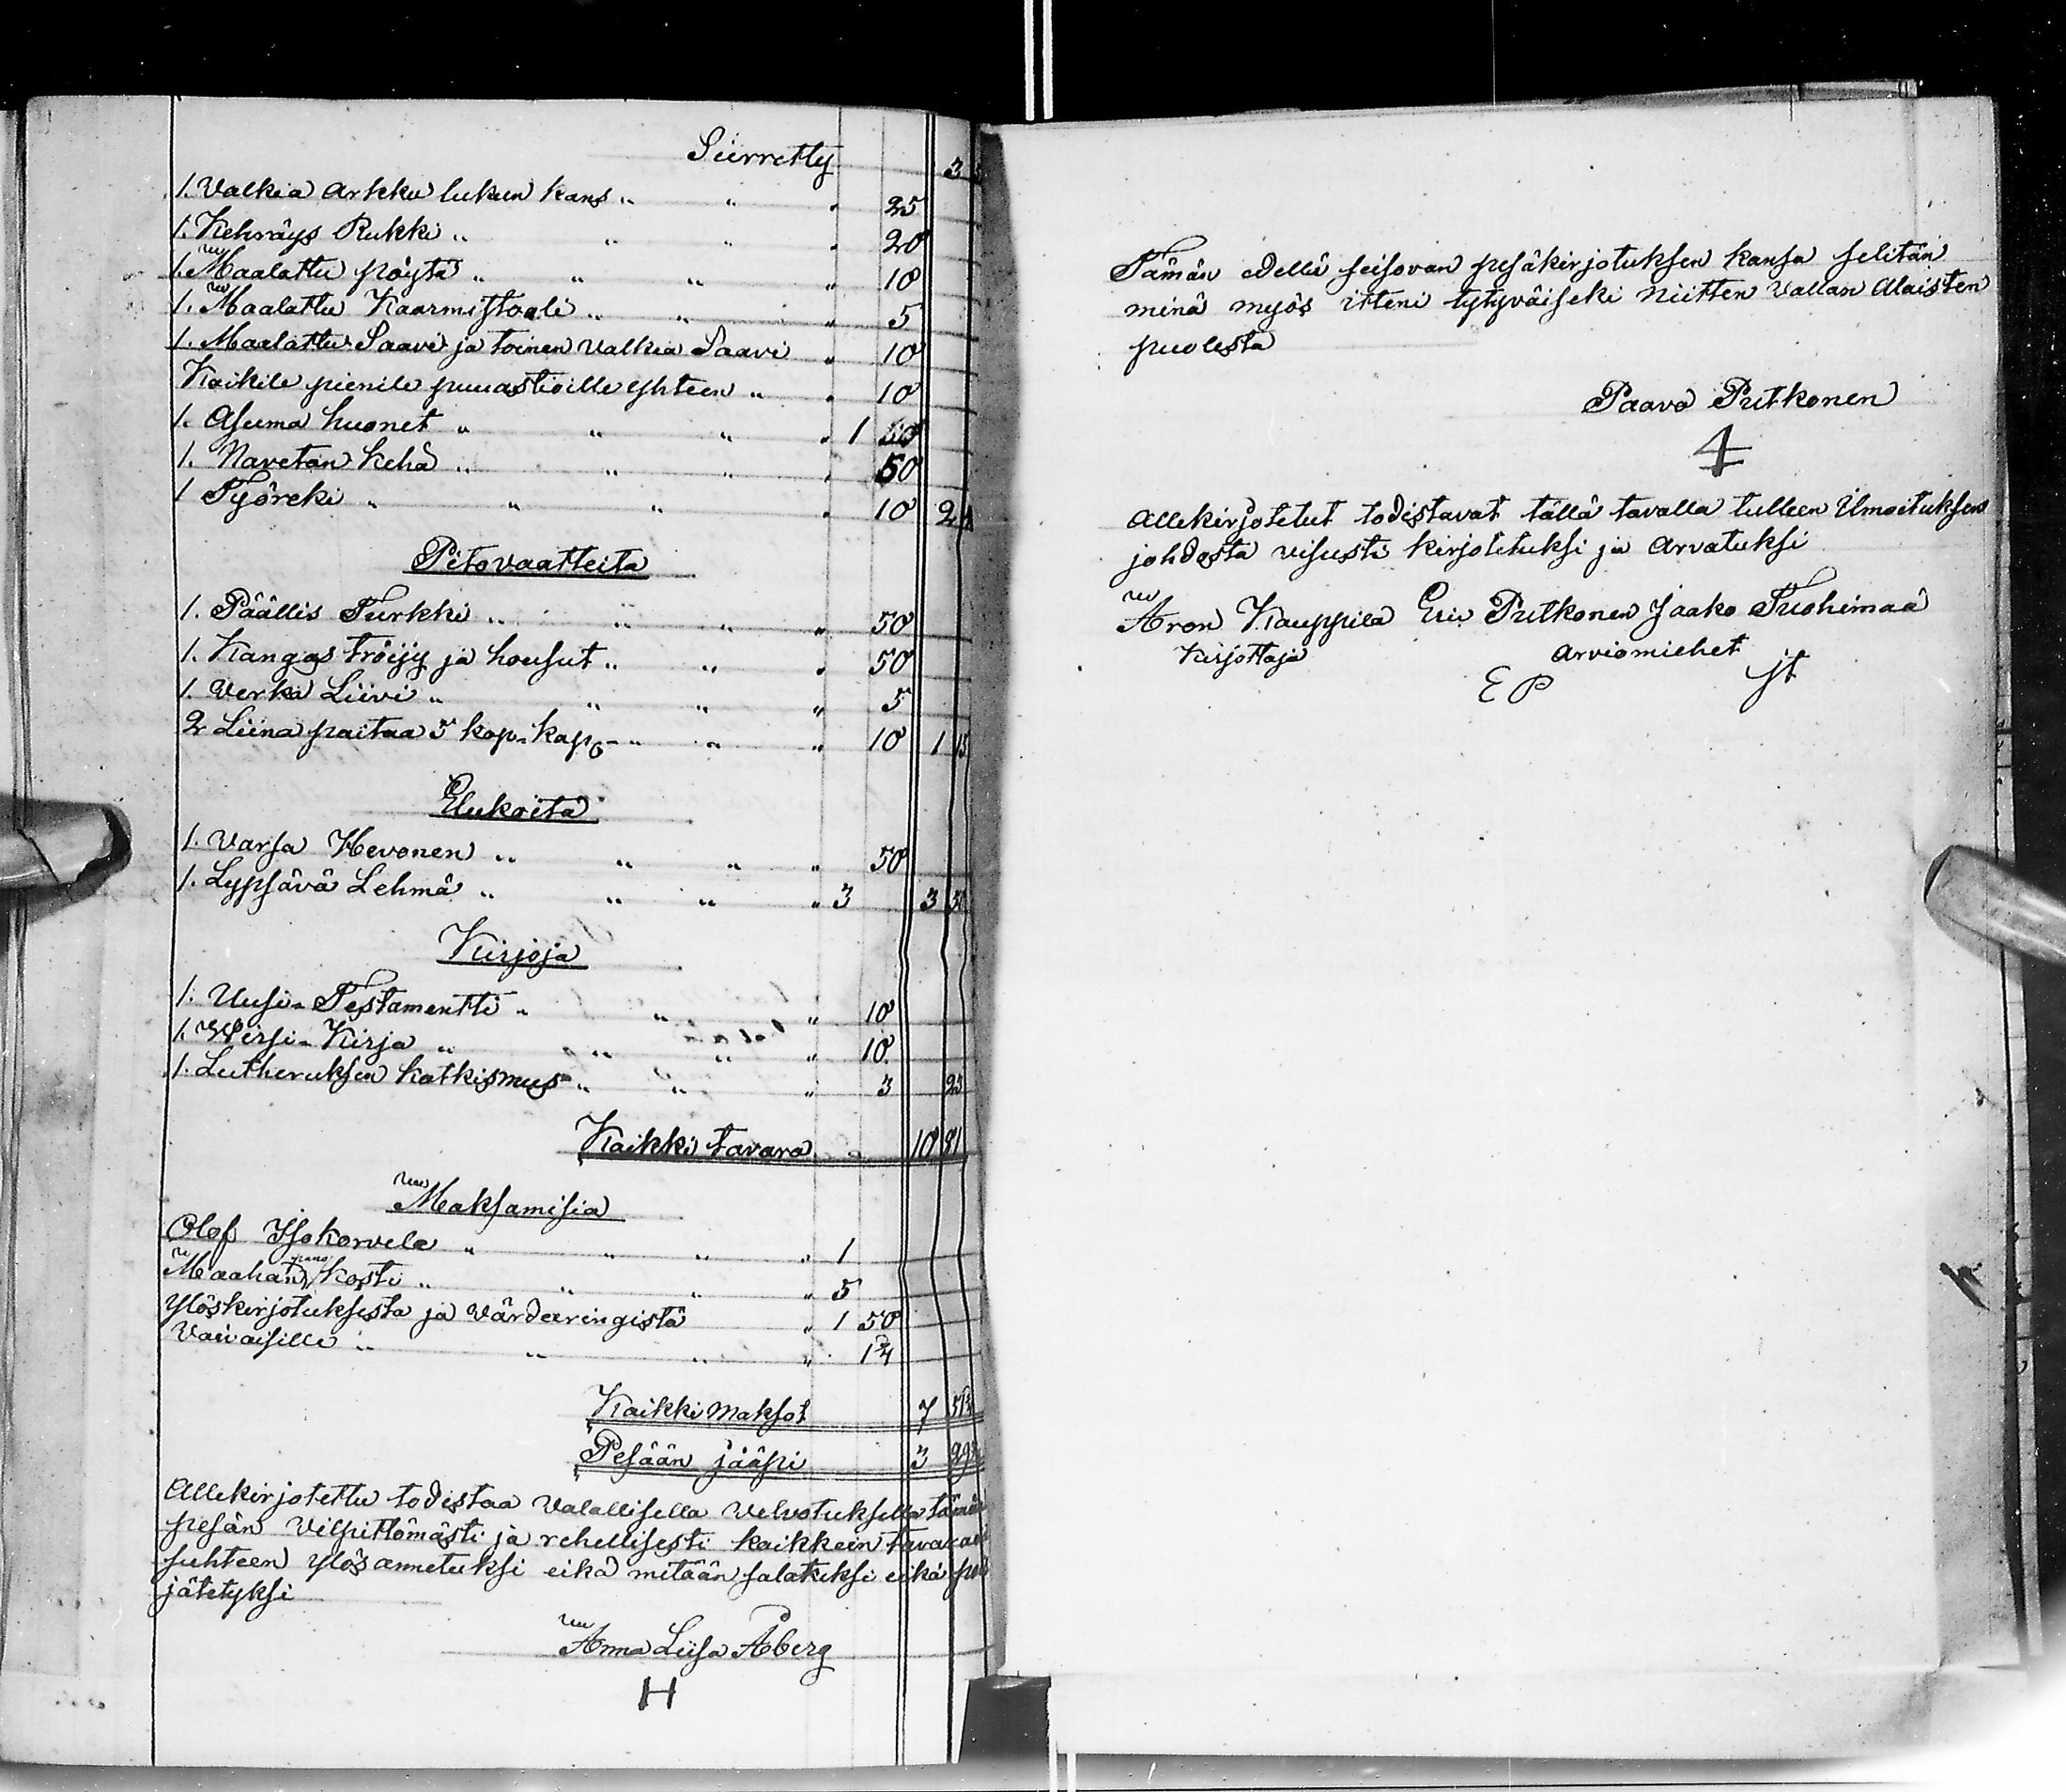 Siirretty 3
1. Valkia Arkku lukun kans „ „ „ 25
1. Kehräys Rukki „ „ „ „ 20
1. Maalattu pöytä „ „ „ „ 10
1. Maalattu Kaarmistooli „ „ „ 5
1. Maalattu Saavi ja toinen Valkia Saavi „ 10
Kaikile pienile puuastioille yhteen „ „ 10
1. Asuma huonet „ „ „ „ 1
1. Navetan kehä „ „ „ „ 50
1 Työreki „ „ „ „ 10 2
Pitovaatteita
1. Päällis Turkki „ „ „ „ 50
1. Kangas tröijy ja housut „ „ „ 50
1. Verka Liivi „ „ „ „ 5
2 Liina paitaa 5 kop. kap. „ „ „ 10 1 15
Elukoita
1. Varsa Hevonen „ „ „ „ 50
1. Lypsävä Lehmä „ „ „ „ 3 3 50
Kirjoja
1. Uusi-Testamentti „ „ „ 10
1. Wirsi-Kirja „ „ „ „ 10.
1. Lutheruksen katkismus „ „ „ 3 23
Kaikki tavara 10 81
Maksamisia
Olof Isokorvela „ „ „ „ 1
Maahan pano kosti „ „ „ „ 5
Ylöskirjotuksesta ja värdeeringistä „ 1 50
Vaivaisille „ „ „ „ 1 3/4
Kaikki maksot 7 51 3/4
Pesään jääpi 3
Allekirjotettu todistaa Valallisella Velvotuksella tämän
pesän Vilpittömästi ja rehellisesti kaikkein
suhteen ylös annetuksi eikä mitään salatuksi eikä
jätetyksi
Anna Liisa Åberg
H
Tämän edellä seisovan pesäkirjotuksen kansa selitän
minä myös itteni tytyväiseksi Niitten Vallan Alaisten
puolesta
Paavo Putkonen
4
Allekirjotetut todistavat tällä tavalla tulleen Ilmoituksen
johdosta visusti kirjotetuksi ja Arvatuksi
Aron Kauppila Eric Putkonen Jaako Tuohimaa
Kirjottaja arviomiehet
E P JT